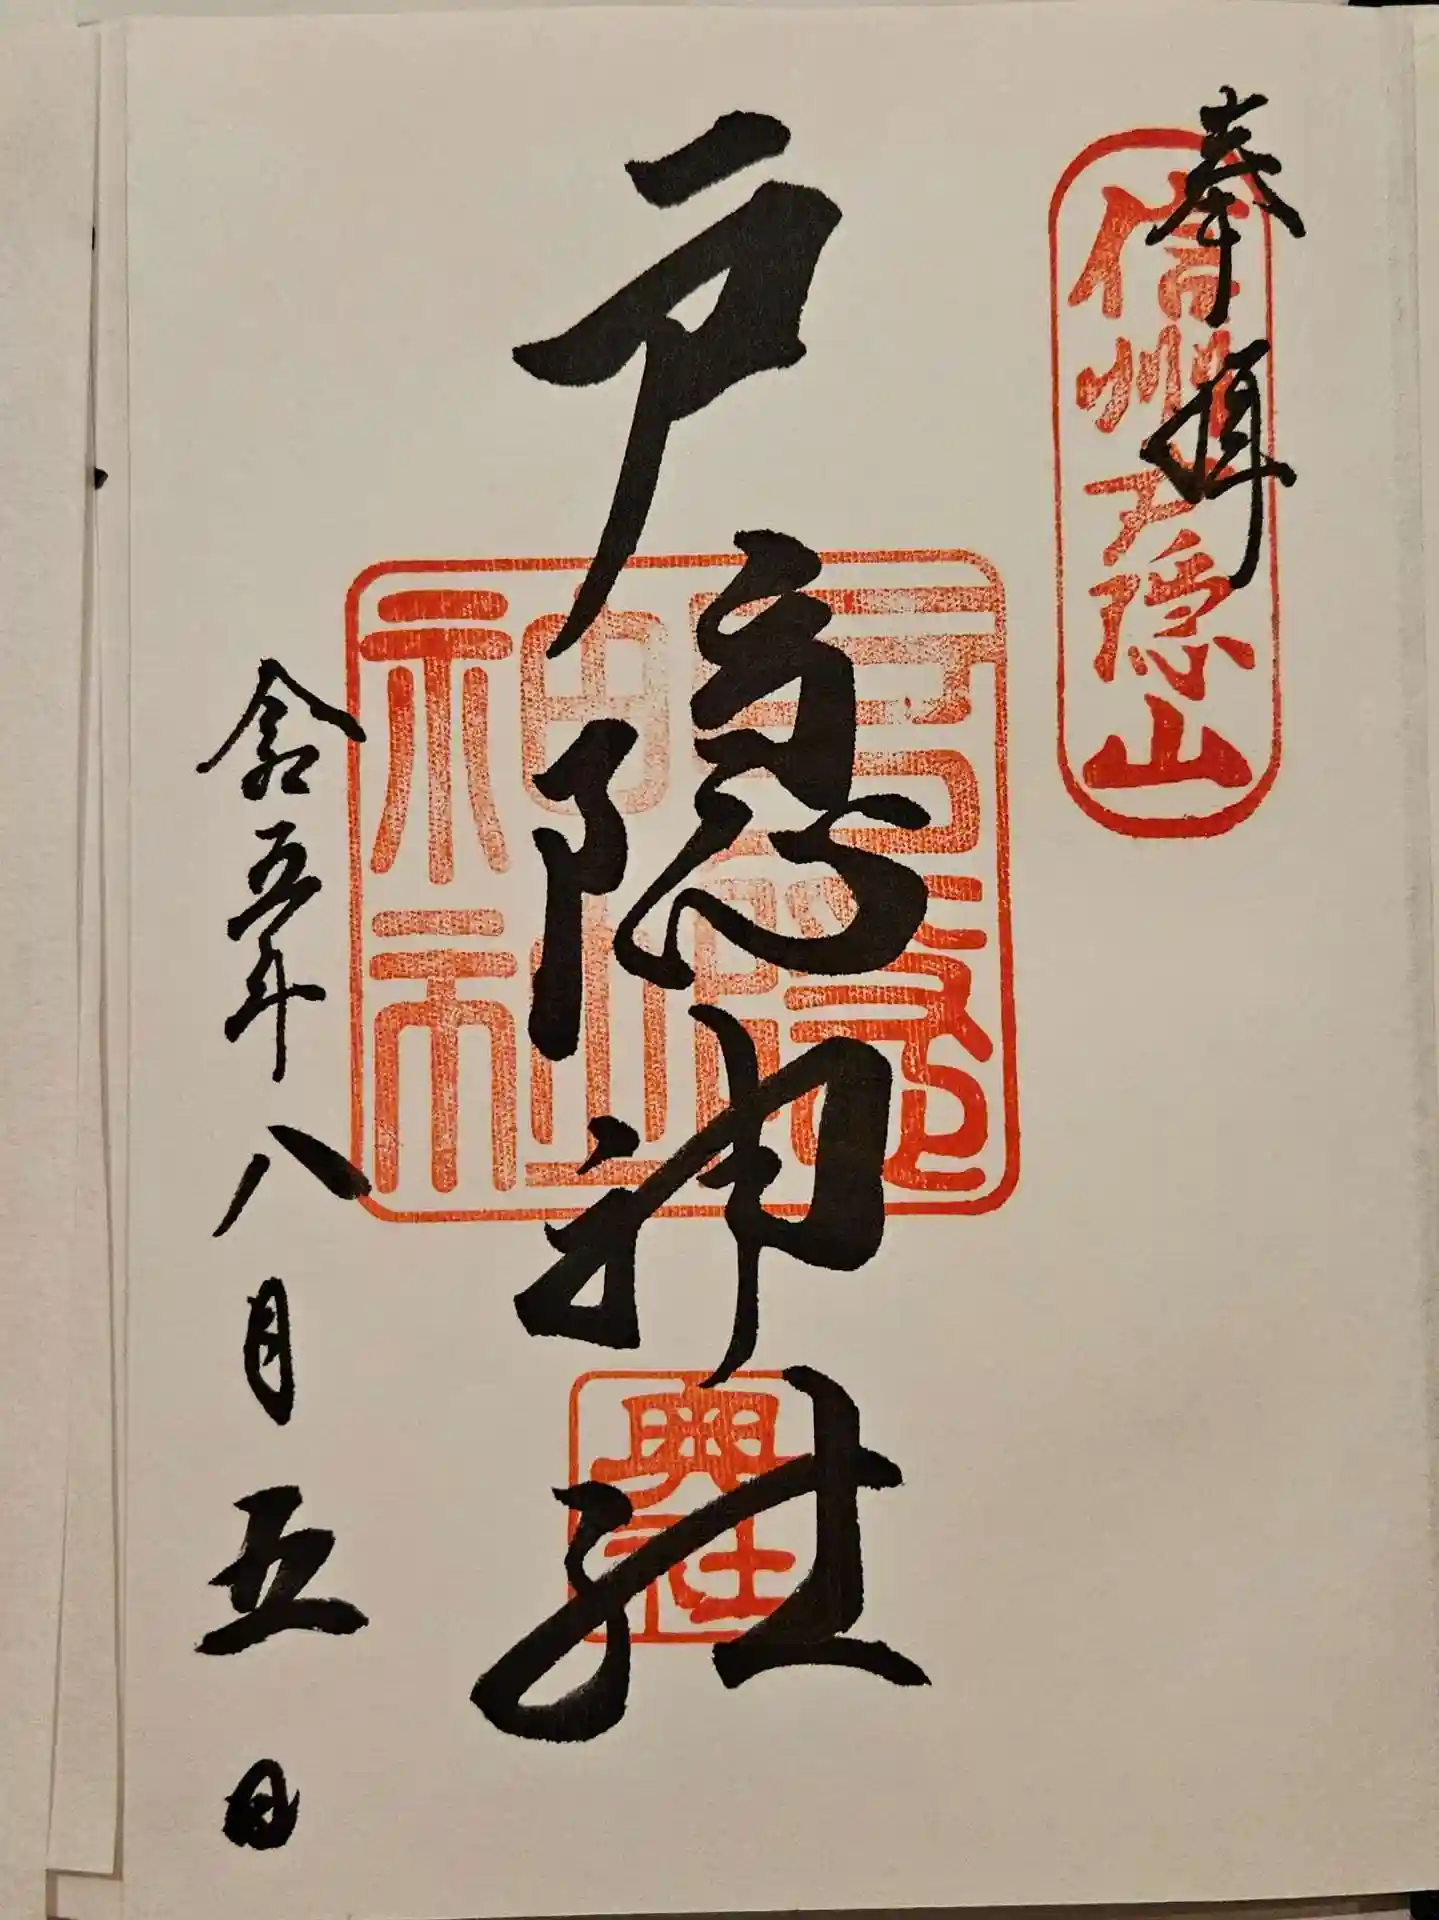 奉拝
信州戸隠山
戸隠神社
戸隠
神社
奥社
令和五年八月五日